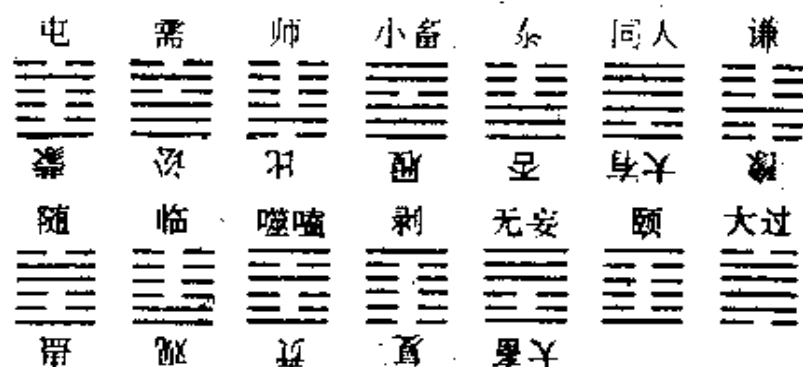 屯 需 师 小畜 同人 谦
蒙 讼 比 履 否 大有 豫
随 临 噬嗑 剥 无妄 颐 大过
蛊 观 贲 复 大畜